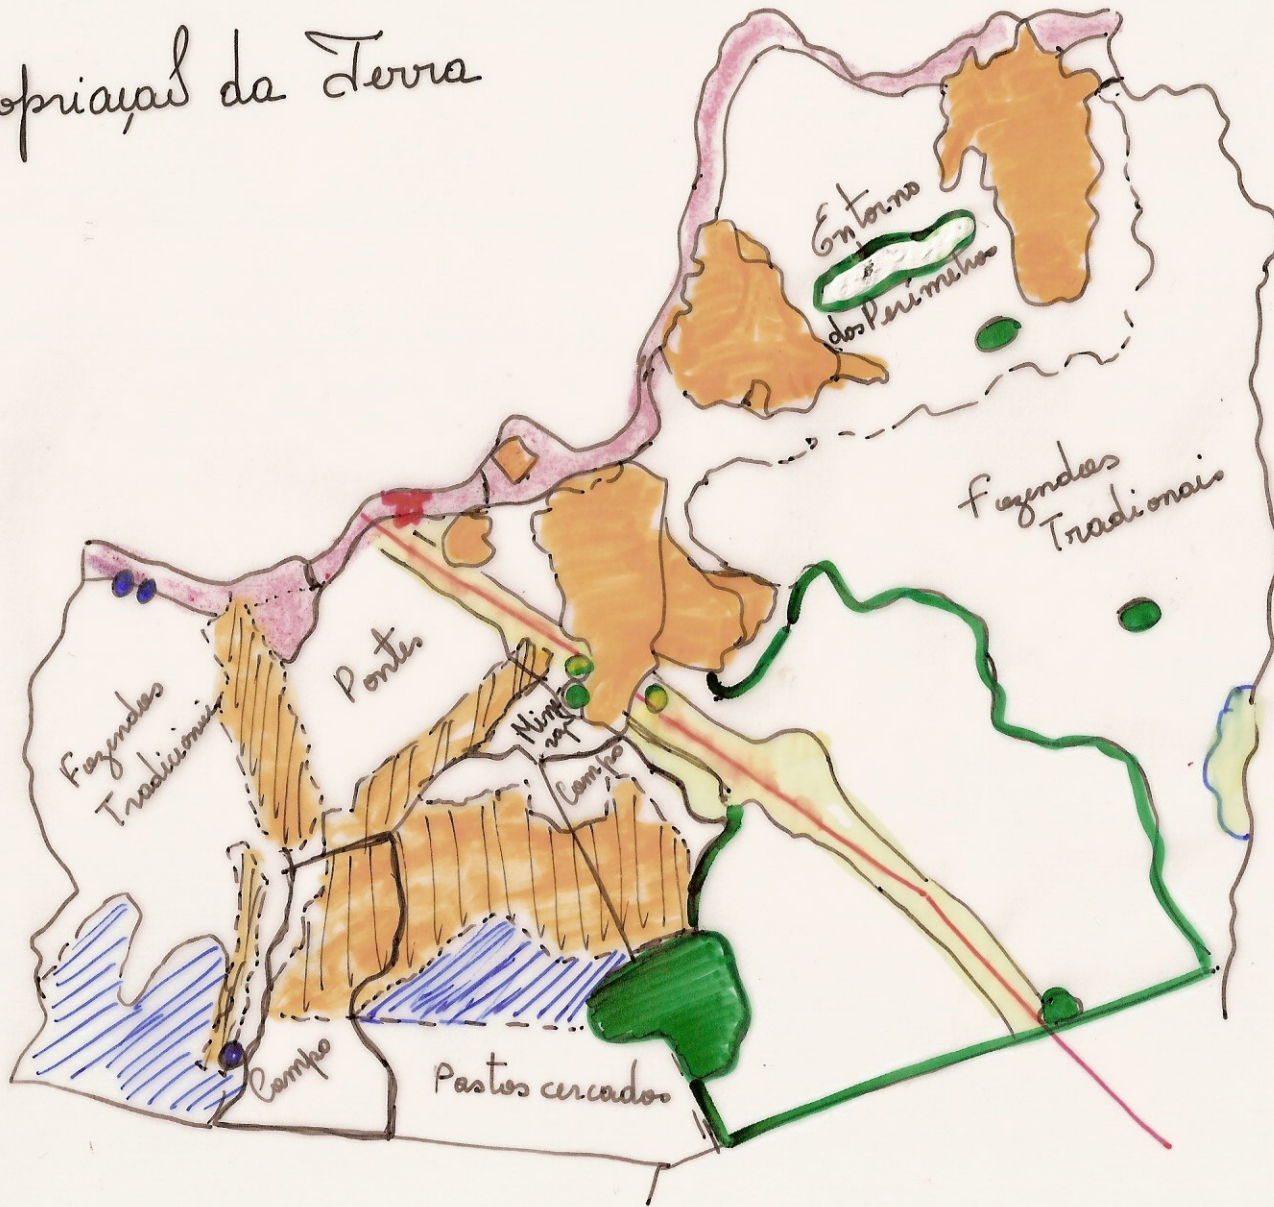 opriação da Terra
Entorno
dos Perímetros
Fazendas
Tradionais
Pontes
Fazendas
Tradicionais
Campo
Campo
Pastos cercados